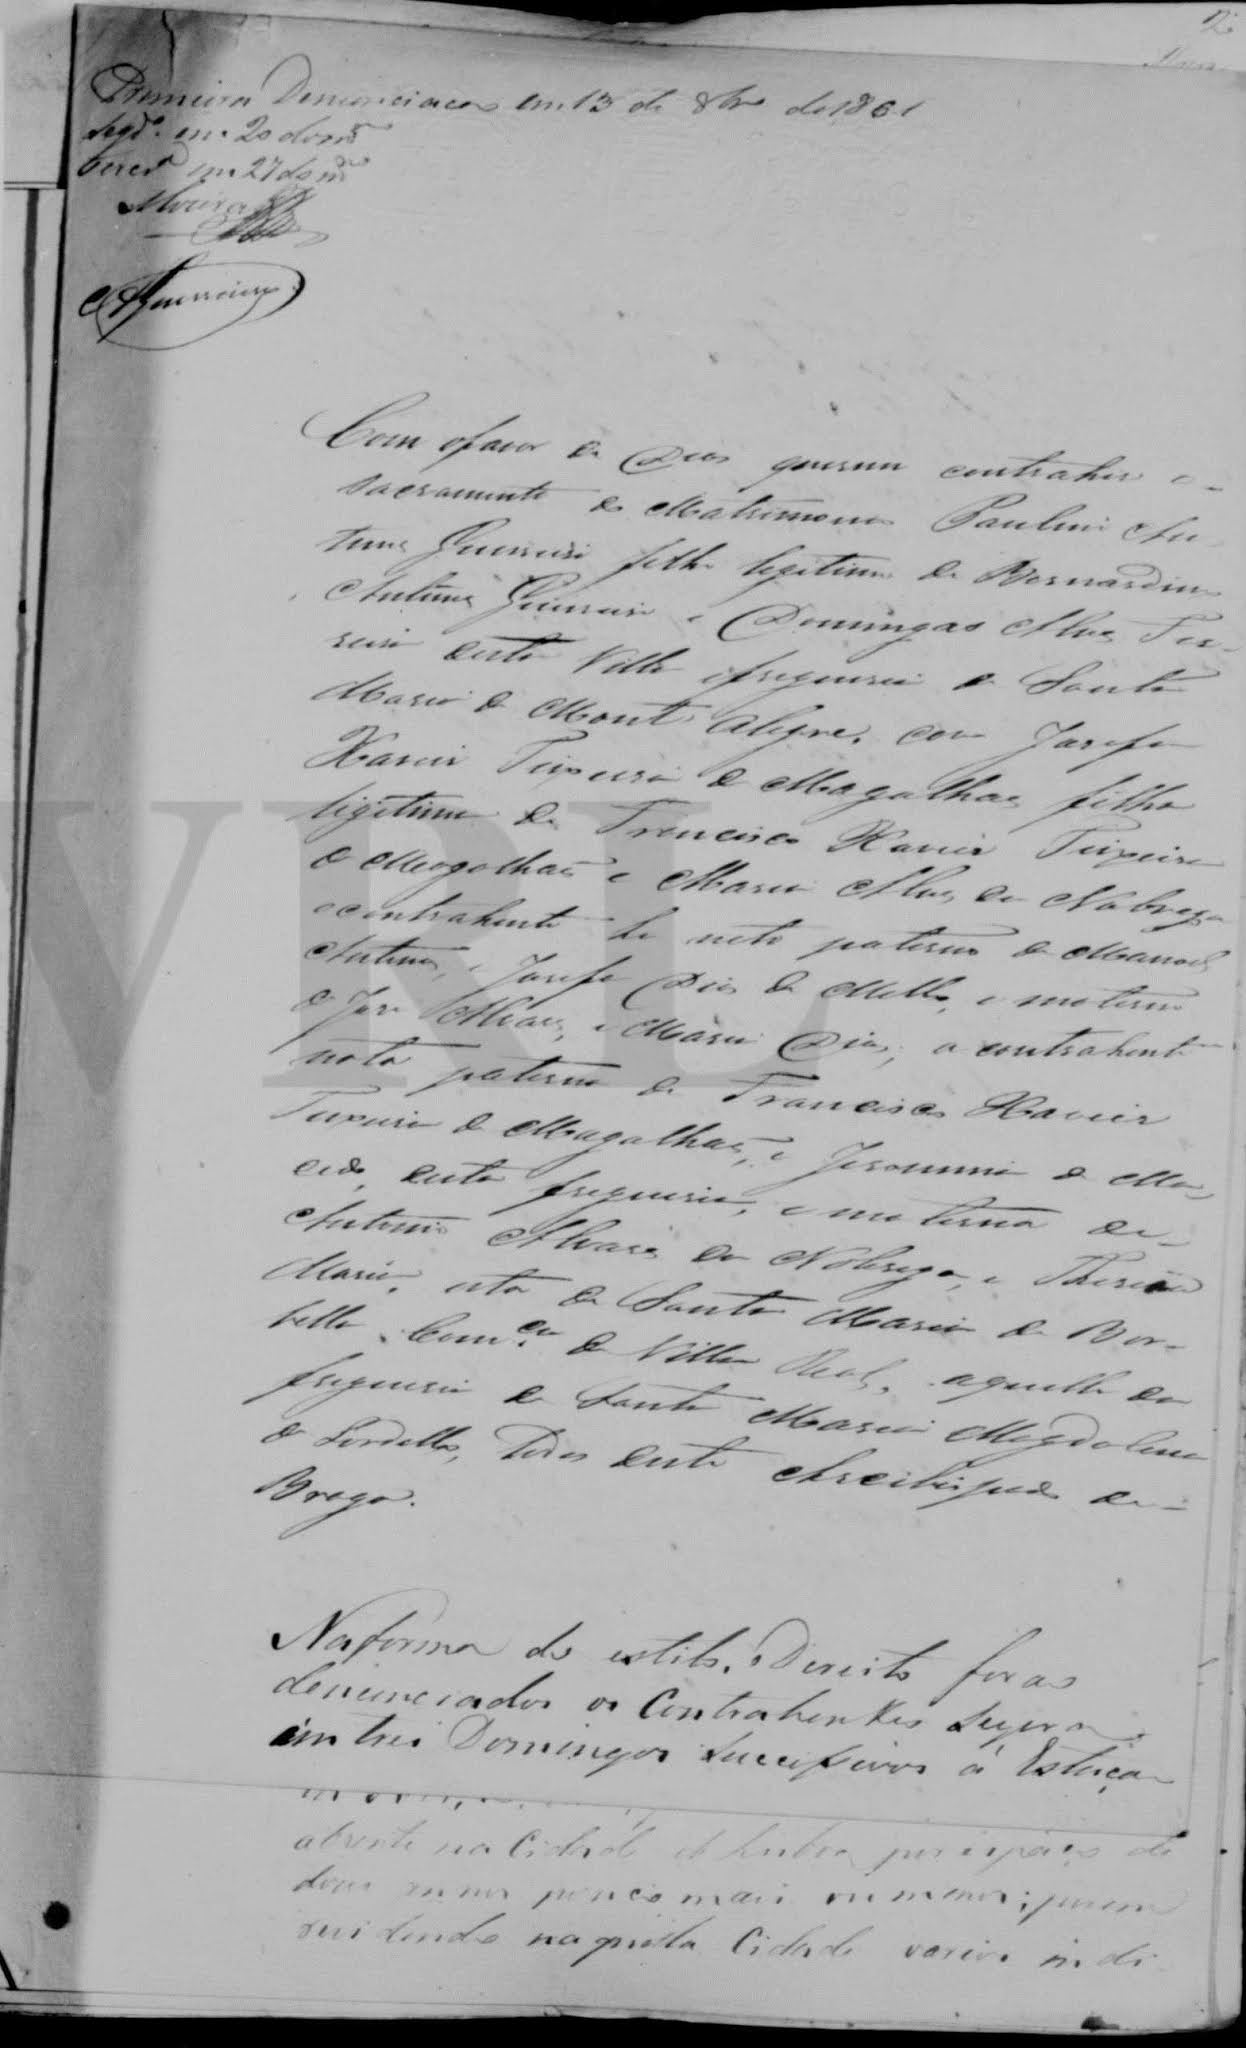 Primeira Denunciacao em 13 de 8bro de 1861
Segda. em 20 do mo
Terca em 27 do mo
Moura
Guerreiro
Com ofavor de Deos querem contrahir o
sacramento do Matrimonio Paulino An-
tunes Guerreiro filho legitimo de Bernardino
Antunes Guerreiro e Domingas Alves Fer-
reira desta Villa efreguesia de Santa
Maria de Mont'alegre, com Josefa
Xavier Teixeira de Magalhaes filha
legitima de Francisco Xavier Teixeira
de Magalhaes e Maria Alves da Nobrega
o contrahente he neto paterno de Manoel
Antunes, e Josefa Dias de Mello, e materno
de José Alvares, e Maria Dias, a contrahente
neta paterna de Francisco Xavier
Teixeira de Magalhaes, e Jeronima de Ma-
cedo, desta freguesia, e materna de
Antonio Alvares da Nobrega, e Theresa
Maria, esta de Santa Maria de Bor-
bella, Comca de Villa Real, aquelle da
freguesia de Santa Maria Magdalena
de Lordello, todos deste Arcebispado de
Braga.
Naforma do estilo, e Direito foraõ
denunciados os Contrahentes supra
em tres Domingos successivos á Estaçaõ
abzente na Cidade de Lisboa por espaço de
dous annos pouco mais ou menos; porem
rezidindo naquella Cidade varios indi-